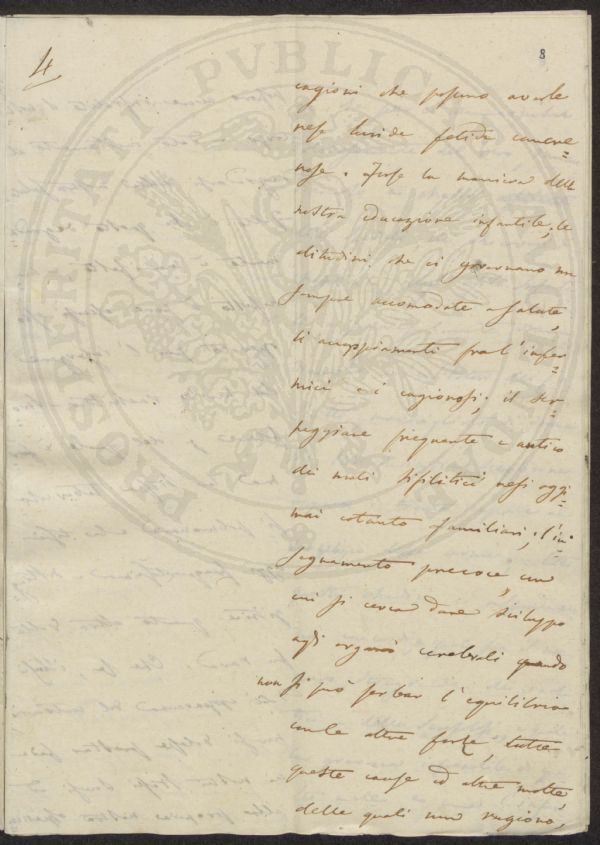 4
8
cagioni che possano averle
rese luride fetide cancre=
nose. Forse la maniera della
nostra educazione infantile; le
abitudini che ci governano non
sempre accomodate a salute,
li accoppiamenti fra l'infer=
micci e i cagionosi; il ser=
peggiare frequente e antico
dei mali sifilitici resi oggi=
mai cotanto famigliari; l'in=
segnamento precoce, con
cui si cerca dare sviluppo
agli organi cerebrali quando
non si può serbar l'equilibrio
con le altre forze, tutte
queste cause ed altre molte,
delle quali non ragiono,
PROSPERITATI PVBLICAE